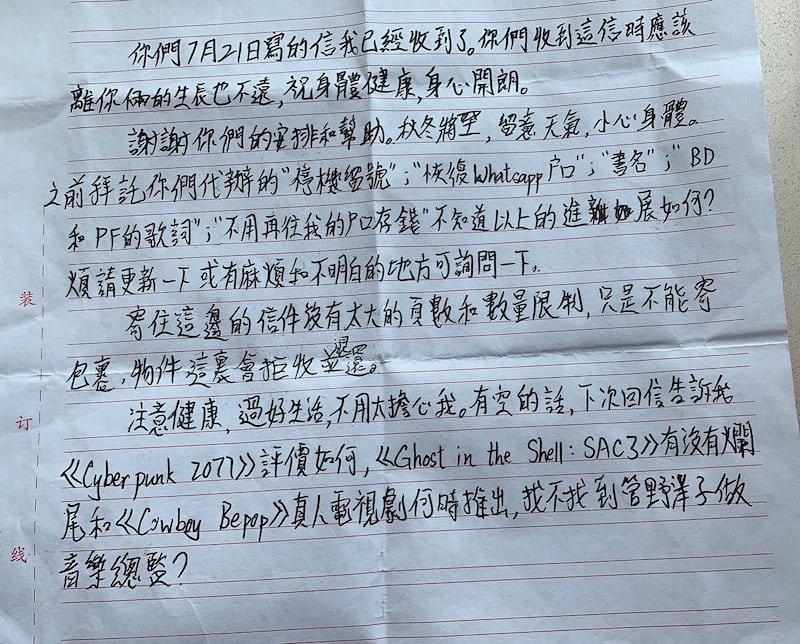 你們7月21日寫的信我已經收到了。你們收到這信時應該
離你倆的生辰也不遠,祝身體健康,身心開朗。
謝謝你們的安排和幫助。秋冬將至,留意天氣,小心身體。
之前拜託你們代辦的"停機留號";"恢復Whatsapp戶口";"書名";"BD
和PF的歌詞";"不用再往我的戶口存錢"不知道以上的進展如何?
煩請更新一下或有麻煩和不明白的地方可詢問一下。
寄往這邊的信件沒有太大的頁數和數量限制,只是不能寄
包裹,物件這裏會拒收並退還。
注意健康,過好生活,不用太擔心我。有空的話,下次回信告訴我
《Cyberpunk 2077》評價如何,《Ghost in the Shell: SAC3》有沒有爛
尾和《Cowboy Bepop》真人電視劇何時推出,找不找到管野洋子做
音樂總監?
装
订
线